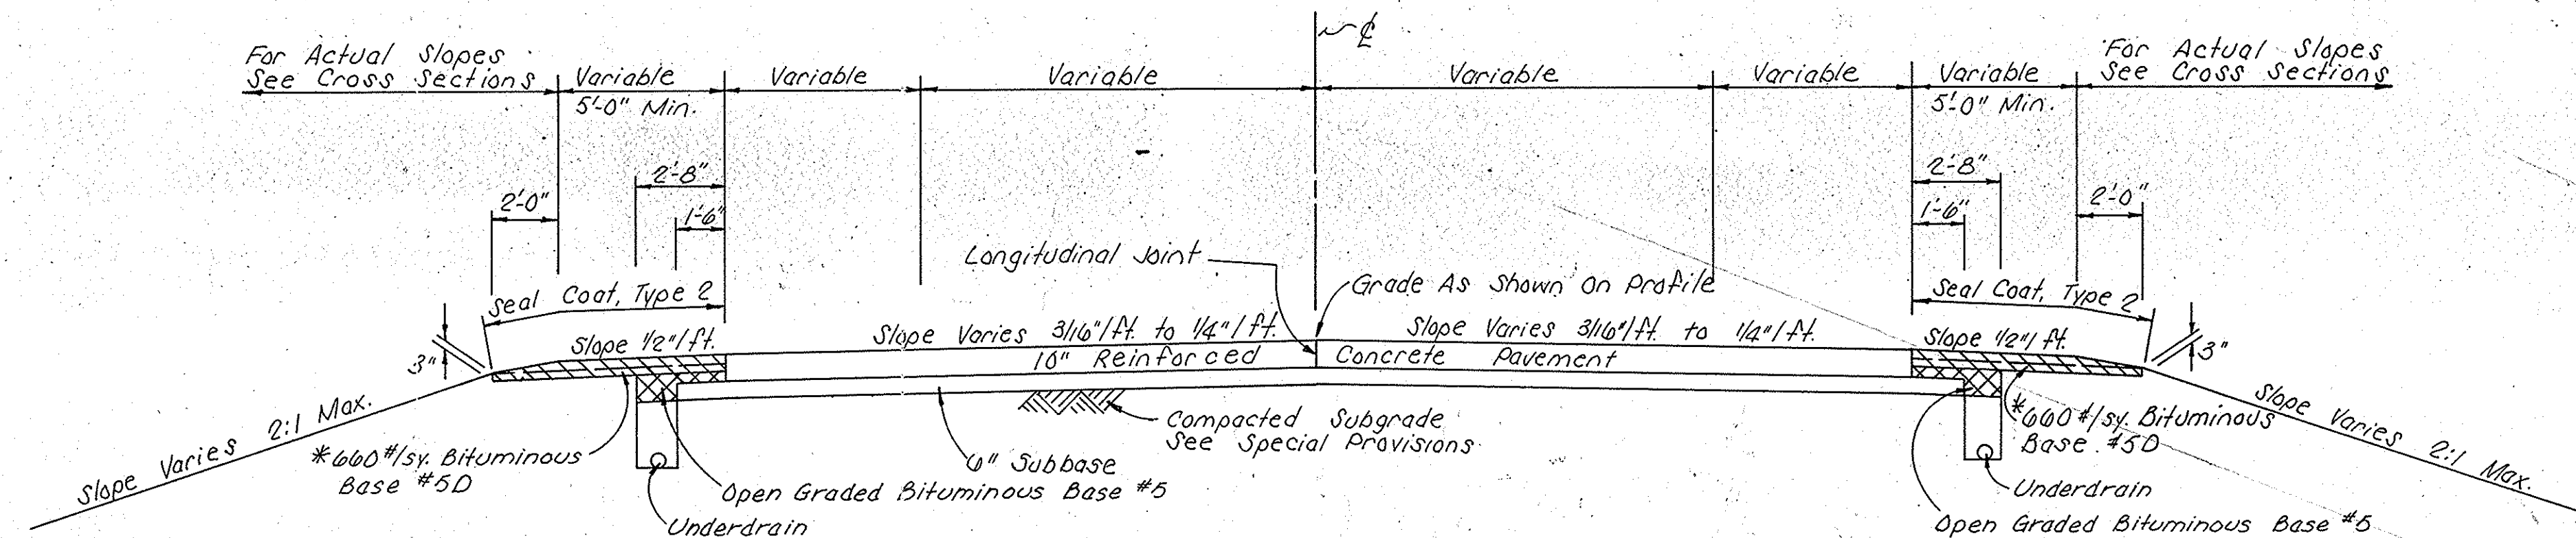 ℄
For Actual Slopes
See Cross Sections
Variable
5'-0" Min.
Variable
Variable
Variable
Variable
Variable
5'-0" Min.
For Actual Slopes
See Cross Sections
2'-8"
2'-0"
1'-6"
2'-8"
1'-6"
2'-0"
Longitudinal Joint
Grade As Shown On Profile
Seal Coat, Type 2
Seal Coat, Type 2
3"
Slope 1/2"/ft.
Slope Varies 3/16"/ft. to 1/4"/ft.
Slope Varies 3/16"/ft. to 1/4"/ft.
Slope 1/2"/ft.
3"
10" Reinforced Concrete Pavement
Slope Varies 2:1 Max.
*660#/sy. Bituminous
Base #5D
Compacted Subgrade
See Special Provisions
6" Subbase
Open Graded Bituminous Base #5
Underdrain
*660#/sy. Bituminous
Base #5D
Slope Varies 2:1 Max.
Underdrain
Open Graded Bituminous Base #5